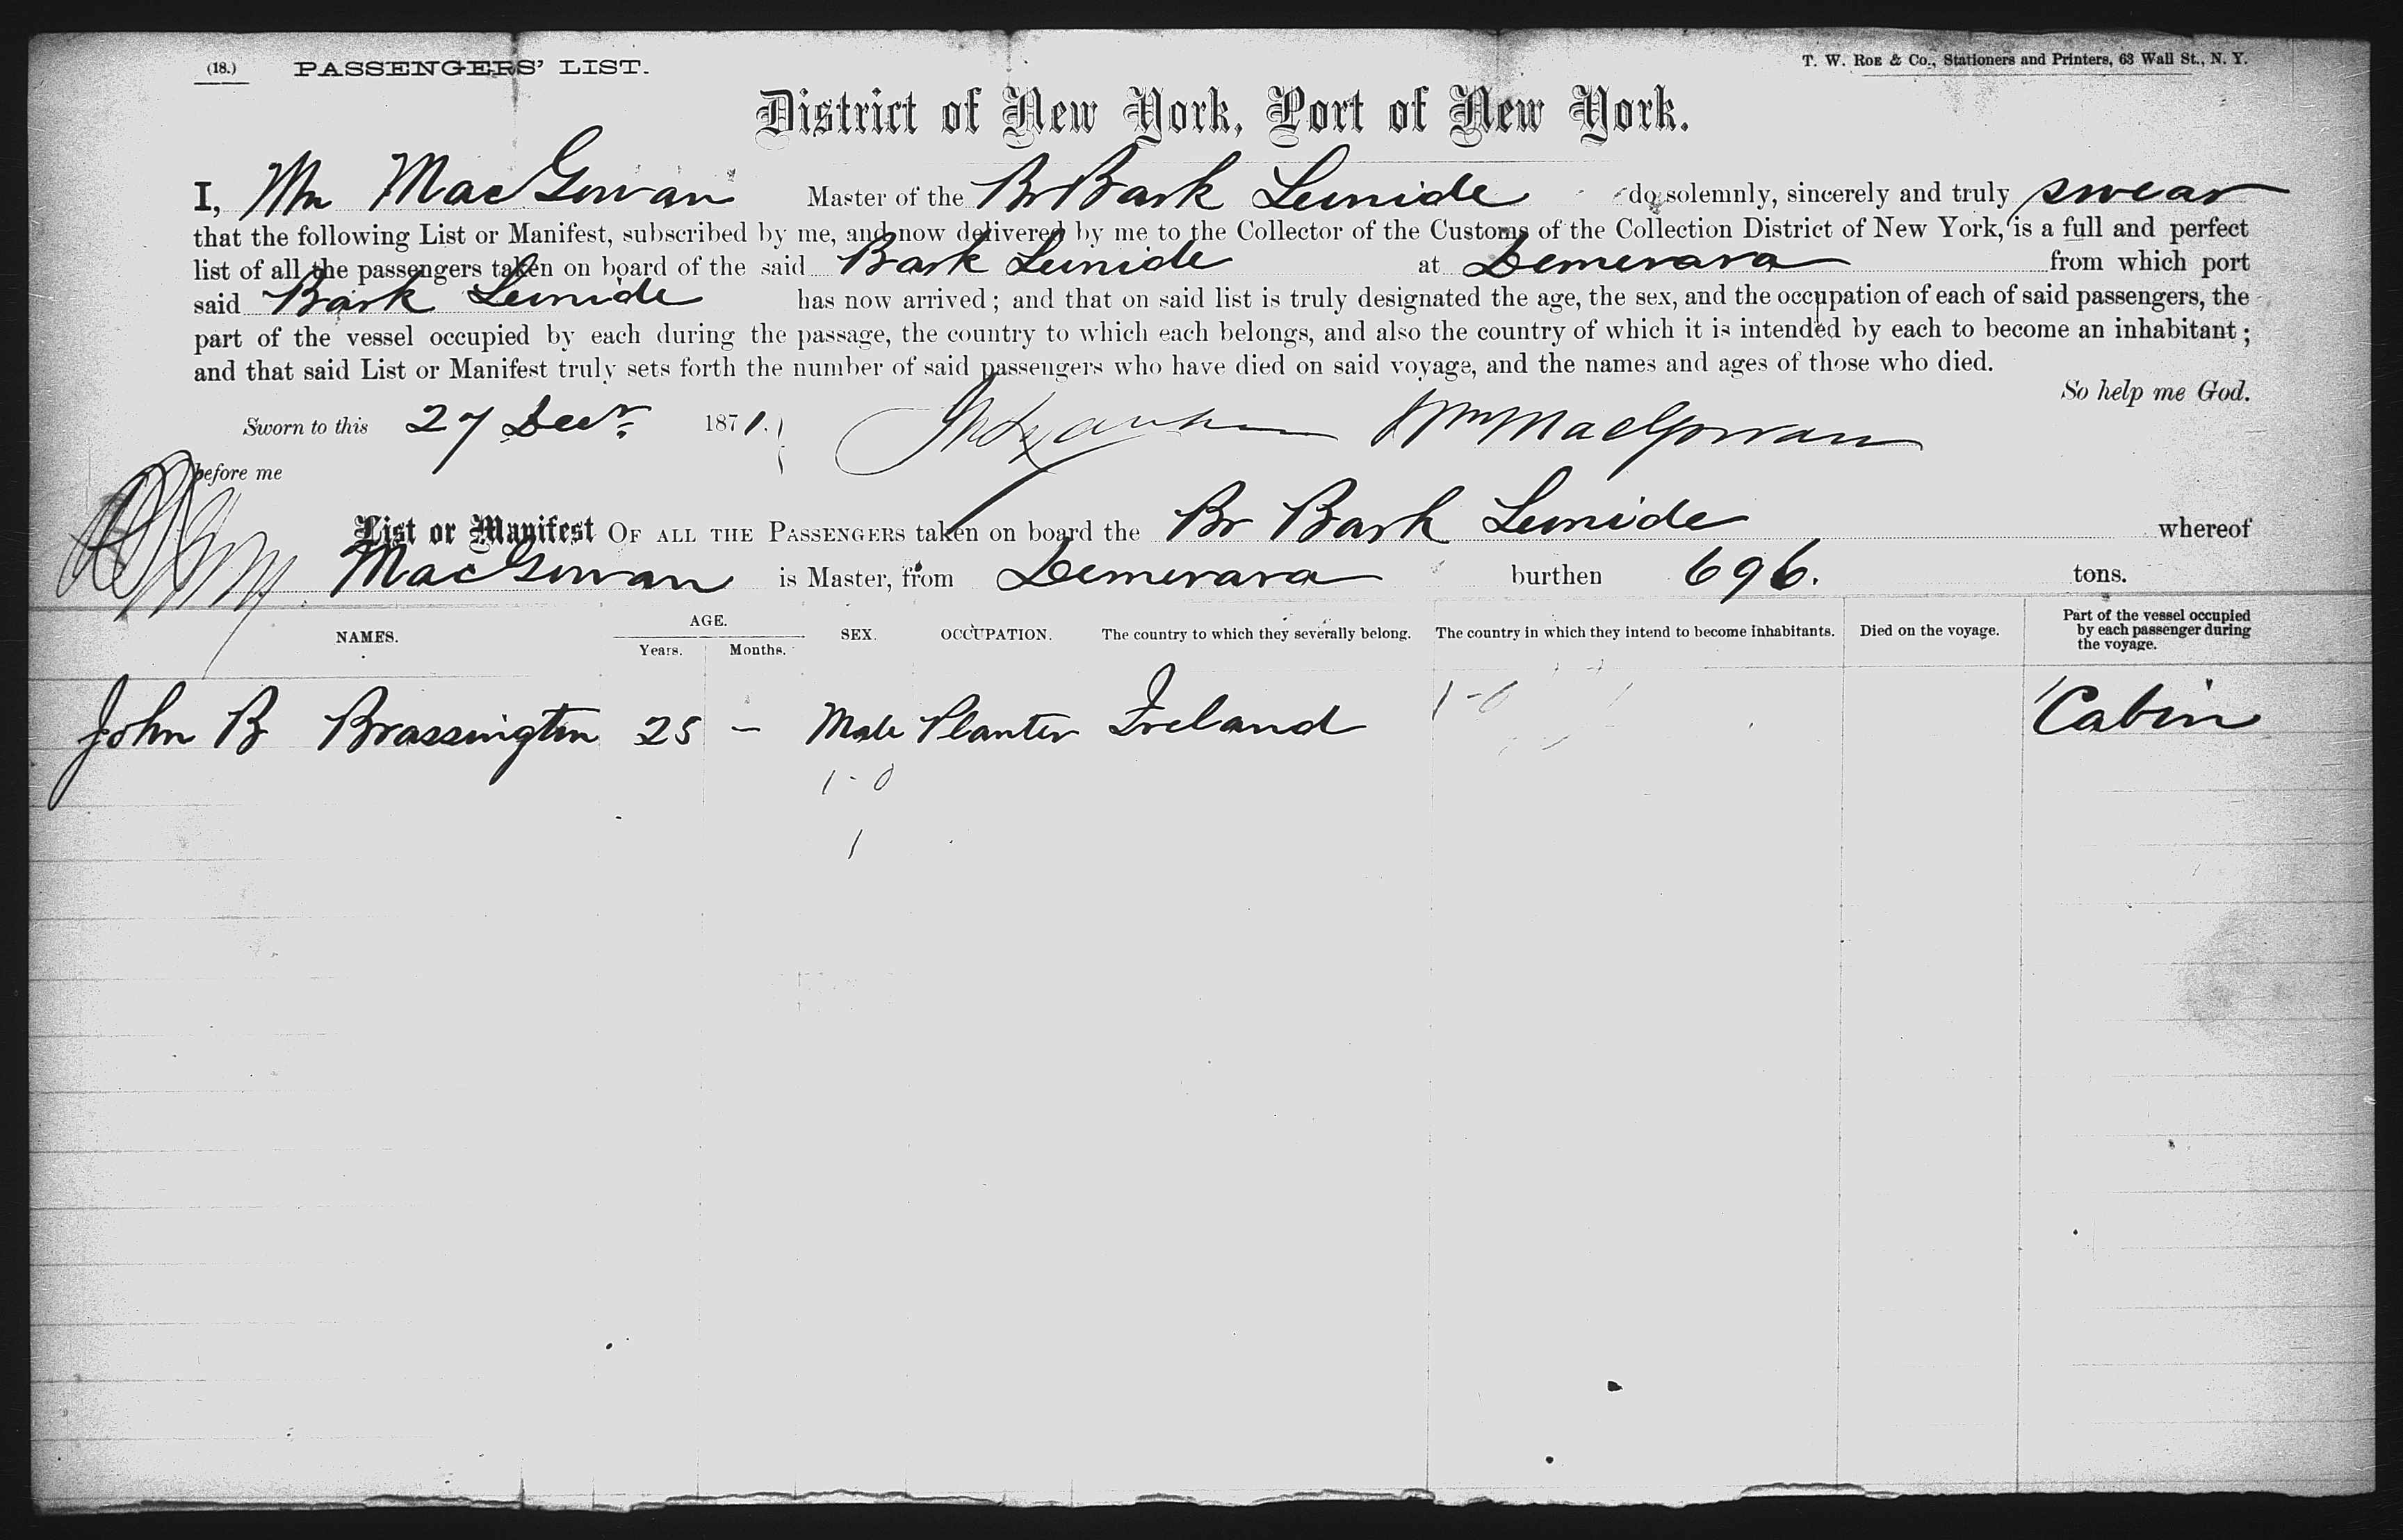 (18.) PASSENGERS' LIST. T. W. ROE & Co., Stationers and Printers, 63 Wall St., N. Y.
District of New York, Port of New York.
I, Wm MacGowan Master of the Br Bark Eumide do solemnly, sincerely and truly swear
that the following List or Manifest, subscribed by me, and now delivered by me to the Collector of the Customs of the Collection District of New York, is a full and perfect
list of all the passengers taken on board of the said Bark at Demerara from which port
said Bark has now arrived; and that on said list is truly designated the age, the sex, and the occupation of each of said passengers, the
part of the vessel occupied by each during the passage, the country to which each belongs, and also the country of which it is intended by each to become an inhabitant;
and that said List or Manifest truly sets forth the number of said passengers who have died on said voyage, and the names and ages of those who died.
So help me God.
Sworn to this 27 Decr 1871. Wm MacGowan
before me
List or Manifest OF ALL THE PASSENGERS taken on board the Br Bark whereof
MacGowan is Master, from Demerara burthen 696. tons.
NAMES. AGE. Years. Months. SEX. OCCUPATION. The country to which they severally belong. The country in which they intend to become inhabitants. Died on the voyage. Part of the vessel occupied by each passenger during the voyage.
John B Brassington 25 – Male Planter Ireland 1-0 Cabin
1-0
1